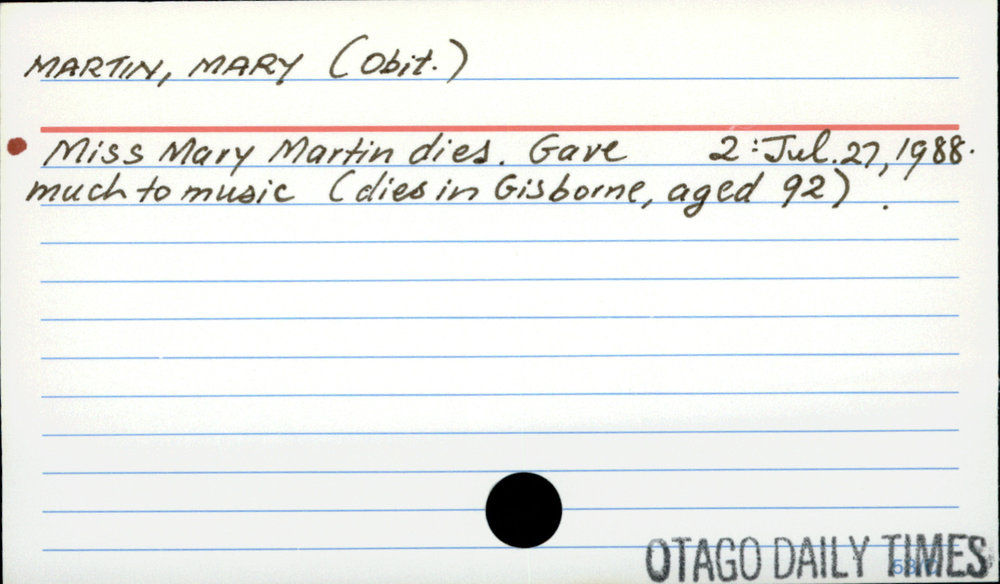 MARTIN, MARY (Obit.)
Miss Mary Martin dies. Gave 2:Jul.27,1988.
much to music (dies in Gisborne, aged 92).
OTAGO DAILY TIMES